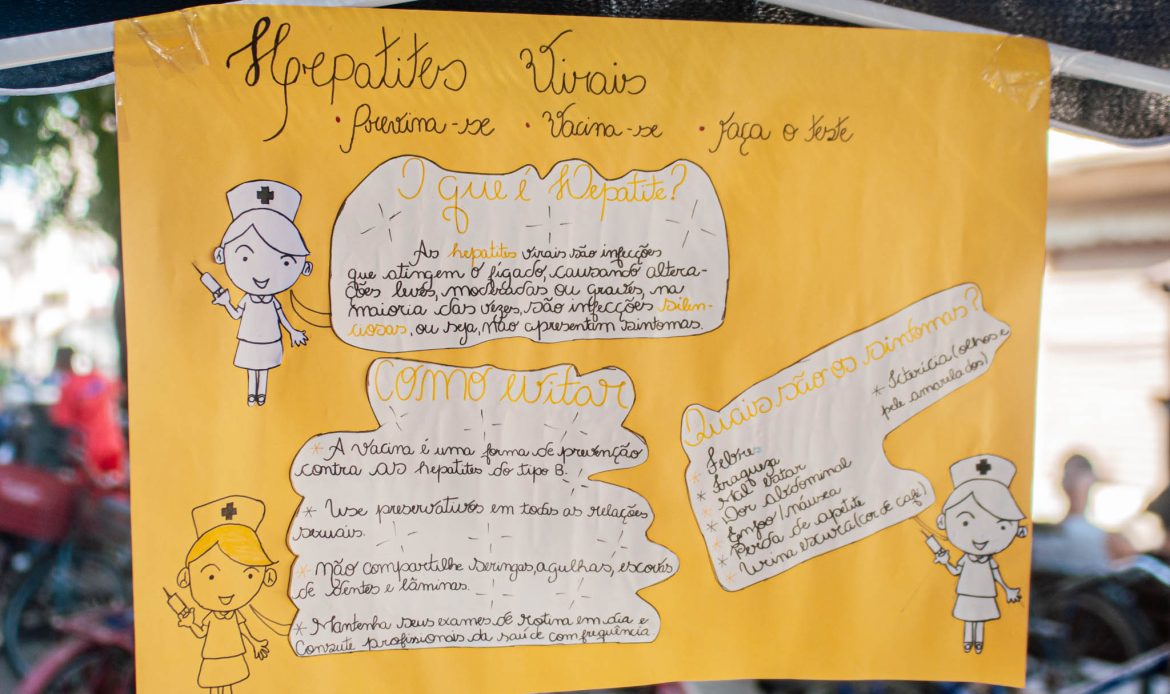 Hepatites Virais
• Previna-se • Vacina-se • Faça o teste
O que é Hepatite?
As hepatites virais são infecções
que atingem o fígado, causando altera-
ções leves, moderadas ou graves, na
maioria das vezes, são infecções silen-
ciosas, ou seja, não apresentam sintomas.
COMO evitar
* A vacina é uma forma de prevenção
contra as hepatites do tipo B.
* Use preservativos em todas as relações
sexuais.
* não compartilhe seringas, agulhas, escovas
de dentes e lâminas.
* Mantenha seus exames de rotina em dia e
Consulte profissionais da saúde com frequência
Quais são os sintomas?
* Febre
* Fraqueza
* Mal estar
* Dor Abdominal
* Enjoo/náusea
* Perda de apetite
* Urina escura (cor de café)
* Icterícia (olhos e
pele amarelados)